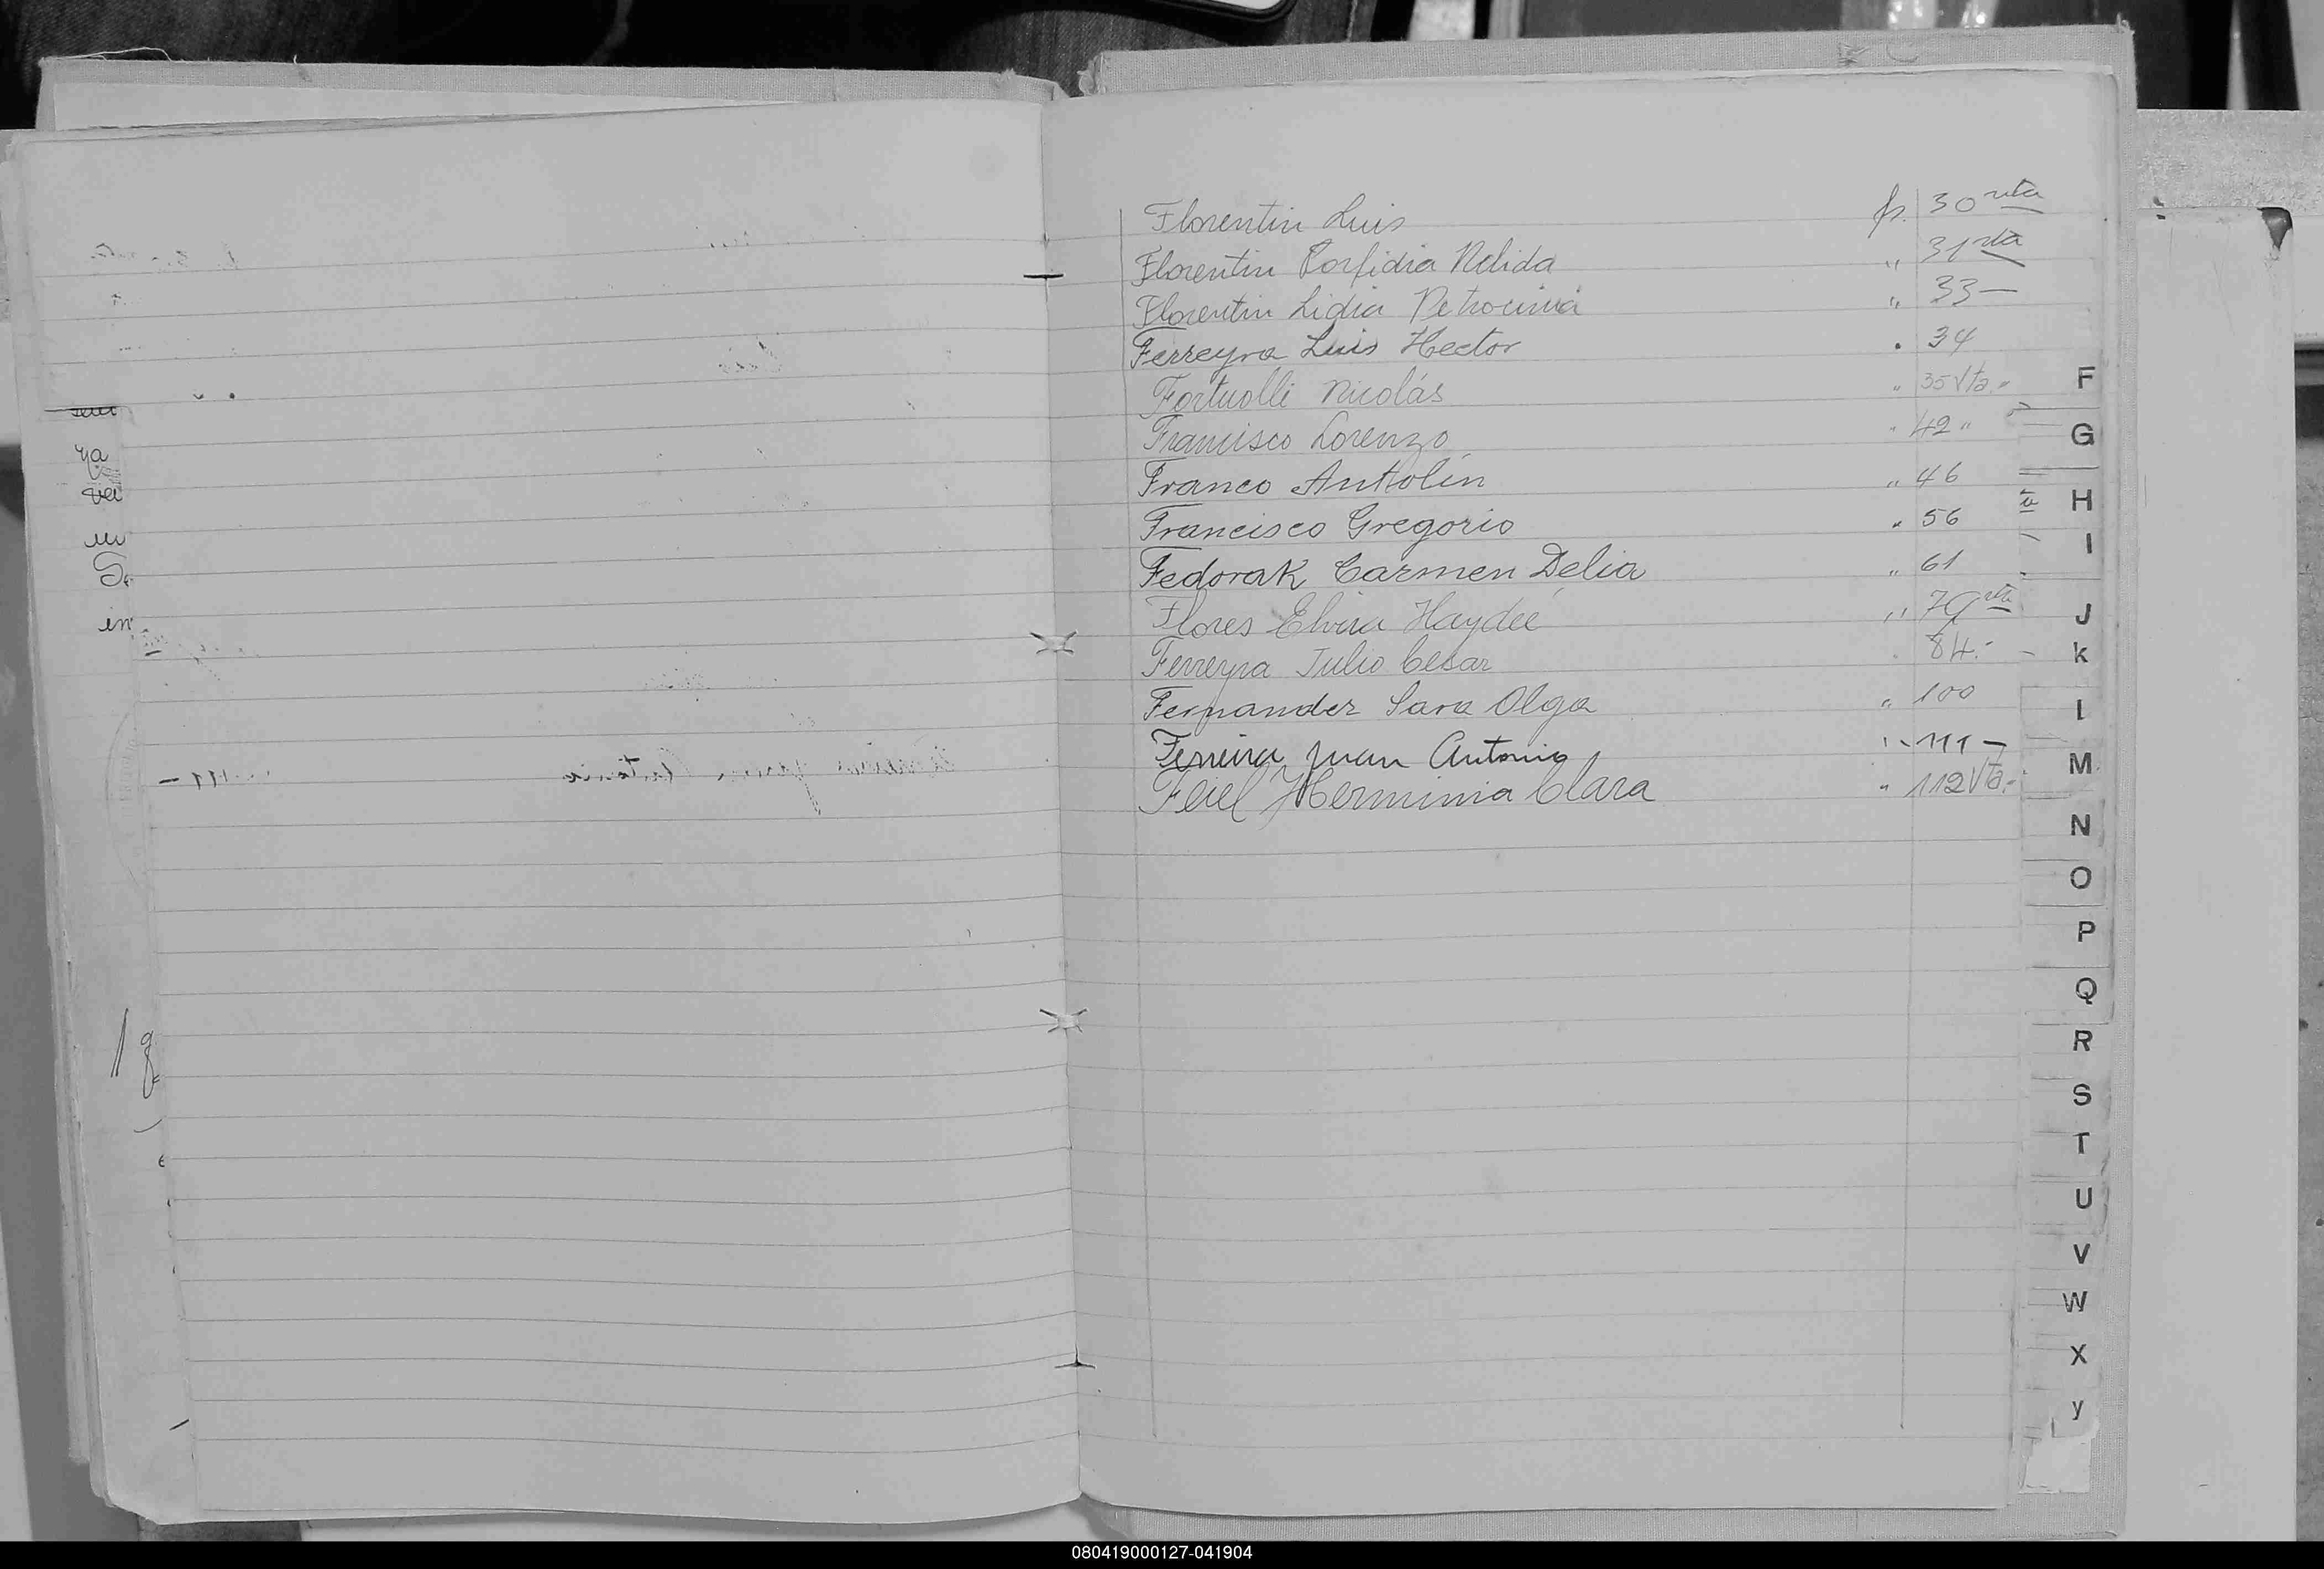 Florentin Luis fs. 30 vta
Florentin Porfidia Nelida " 31 vta
Florentin Lidia Petrocinia " 33 —
Ferreyra Luis Hector " 34
Fortuolli Nicolás " 35 Vta. "
Francisco Lorenzo " 42 "
Franco Anttolín " 46
Francisco Gregorio " 56
Fedorak Carmen Delia " 61
Flores Elvira Haydée " 79 vta
Ferreyra Julio Cesar " 84.-
Fernandez Sara Olga " 100
Ferreira Juan Antonio " 111 —
Feiel Herminia Clara " 112 Vta.-
F
G
H
I
J
k
l
M
N
O
P
Q
R
S
T
U
V
W
X
y
080419000127-041904